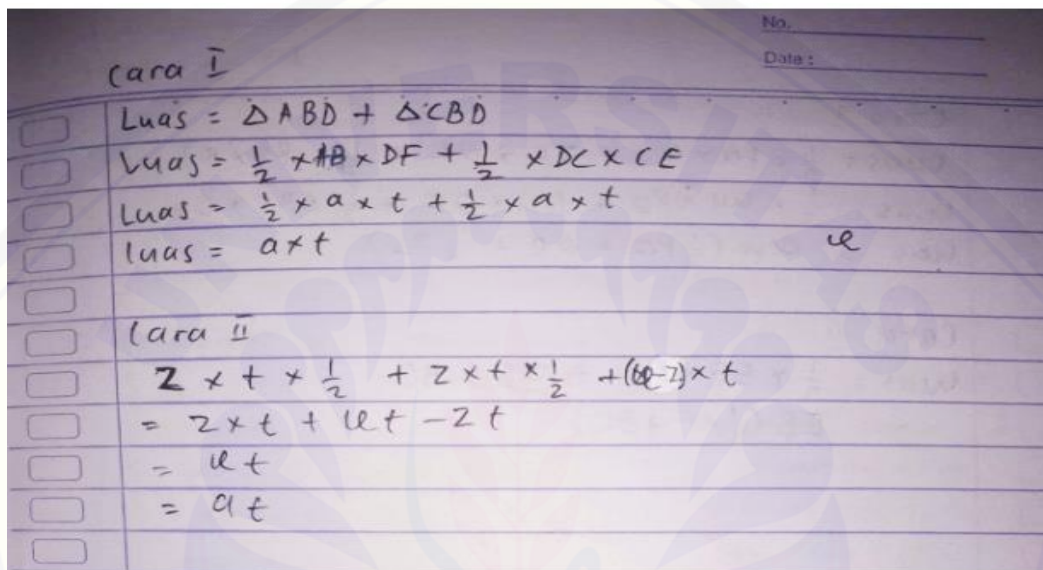 No.
Date :
Cara I
Luas = Δ ABD + Δ CBD
Luas = 1/2 × AB × DF + 1/2 × DC × CE
Luas = 1/2 × a × t + 1/2 × a × t
luas = a × t
Cara II
z × t × 1/2 + z × t × 1/2 + ( -z) × t
= z × t + t - z t
= t
= a t